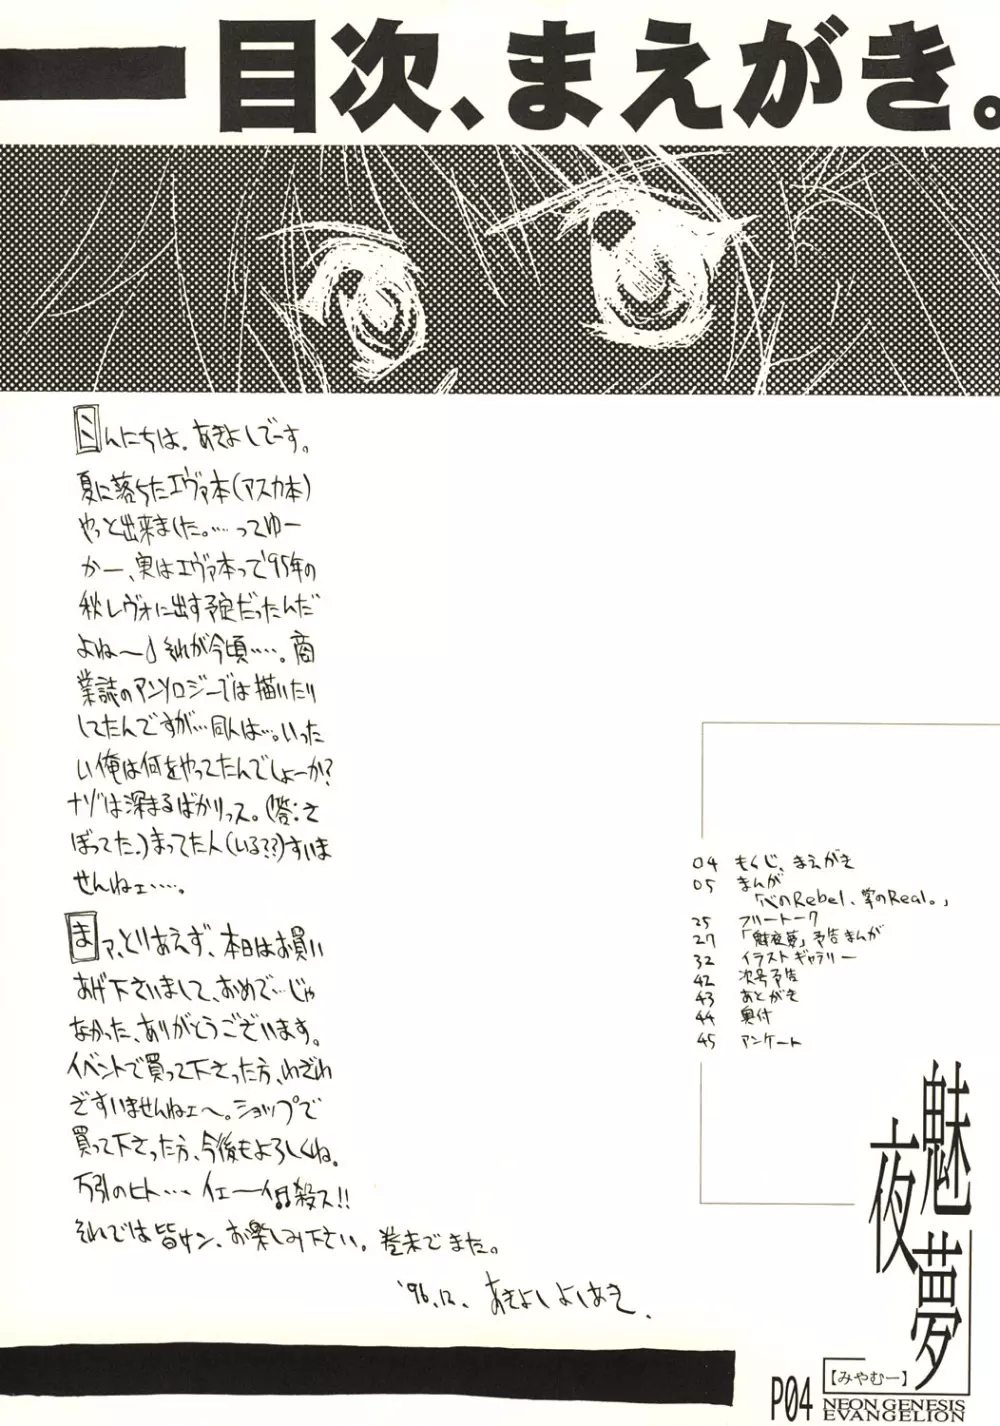 目次、まえがき。
こんにちは。あきよしでーす。
夏に落ちたエヴァ本(アスカ本)
やっと出来ました。‥‥ってゆー
かー、実はエヴァ本って'95年の
秋レヴォに出す予定だったんだ
よね〜♪それが今頃‥‥。商
業誌のアンソロジーでは描いたり
してたんですが…同人は…。いった
い俺は何をやってたんでしょーか?
ナゾは深まるばかりっス。(答:さ
ぼってた。)まってた人(いる??)すいま
せんねェ‥‥。
まァ、とりあえず、本日はお買い
あげ下さいまして、おめで…じゃ
なかった、ありがとうございます。
イベントで買って下さった方、わざわ
ざすいませんねェ〜。ショップで
買って下さった方、今後もよろしくね。
万引のヒト… イェーイ♫殺ス!!
それでは皆サン、お楽しみ下さい。巻末でまた。
'96.12. あきよしよしあき.
04 もくじ、まえがき
05 まんが
「心のRebel、掌のReal。」
25 フリートーク
27 「魅夜夢」予告まんが
32 イラストギャラリー
42 次号予告
43 あとがき
44 奥付
45 アンケート
魅夜夢
【みやむー】
NEON GENESIS
EVANGELION
P04